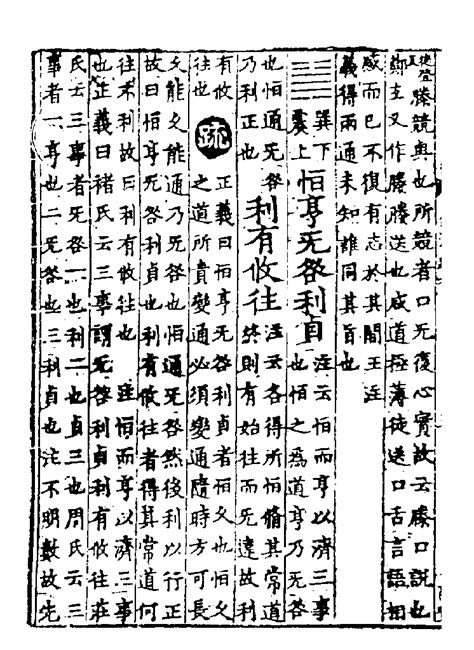 徒登反滕競與也所競者口无復心實故云滕口說也
鄭玄又作媵媵送也咸道極薄徒送口舌言語相
感而已不復有志於其間王注
義得兩通未知誰同其旨也
䷟
巽下
震上
恒亨无咎利貞
注云恒而亨以濟三事
也恒之爲道亨乃无咎
也恒通无咎
乃利正也
利有攸往
注云各得所恒脩其常道
終則有始往而无違故利
有攸
往也
疏
正義曰恒亨无咎利貞者恒久也恒久
之道所貴變通必須變通隨時方可長
久能久能通乃无咎也恒通无咎然後利以行正
故曰恒亨无咎利貞也利有攸往者得其常道何
往不利故曰利有攸往也 注恒而亨以濟三事
也正義曰褚氏云三事謂无咎利貞利有攸往莊
氏云三事者无咎一也利二也貞三也周氏云三
事者一亨也二无咎也三利貞也注不明數故先